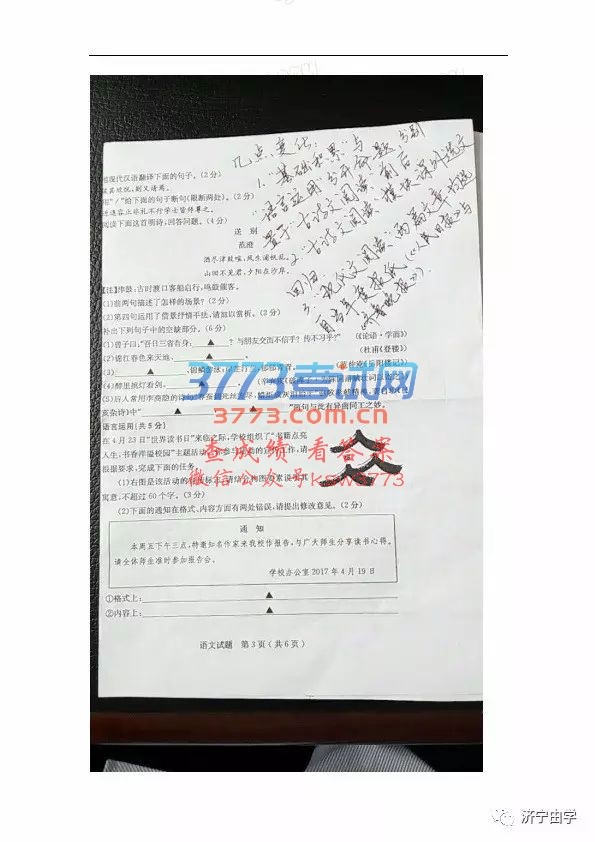 几点变化:
1. "基础积累"与
"语言运用"分开命题,分别
置于"古诗文阅读"前后
2. "古诗文阅读"模块课外选文
回归
3. "现代文阅读"两篇文章均选
自当年度报纸(《人民日报》与
《齐鲁晚报》).
用现代汉语翻译下面的句子。(2分)
用"/"给下面的句子断句(限断两处)。(2分)
阅读下面这首明诗,回答问题。(4分)
送 别
范澄
酒尽津鼓喧,风生浦帆乱。
山回不见君,夕阳在沙岸。
【注】津鼓:古时渡口客船启行,鸣鼓催客。
(1)前两句描述了怎样的场景?(2分)
(2)第四句运用了借景抒情手法,请加以赏析。(2分)
补出下列句子中的空缺部分。(6分)
(1)曾子曰:"吾日三省吾身:▲?与朋友交而不信乎?传不习乎?" (《论语·学而》)
(2)锦江春色来天地,▲。 (杜甫《登楼》)
(3)▲,锦鳞游泳,岸芷汀兰,郁郁青青。
(4)醉里挑灯看剑,▲。
亥杂诗》中"▲,▲"两句与此有异曲同工之妙。
语言运用(共5分)
在4月23日"世界读书日"来临之际,学校组织了"书籍点亮
人生,书香洋溢校园"主题活动,请
根据要求,完成下面的任务。
(1)右图是该活动的
寓意,不超过60个字。(3分)
(2)下面的通知在格式、内容方面有两处错误,请提出修改意见。(2分)
通 知
本周五下午三点,特邀知名作家来我校作报告,与广大师生分享读书心得。
请全体师生准时参加报告会。
学校办公室2017年4月19日
①格式上:▲
②内容上:▲
语文试题 第3页(共6页)
3773考试网
3773.com.cn
查成绩 看答案
微信公众号KSW3773
济宁由学